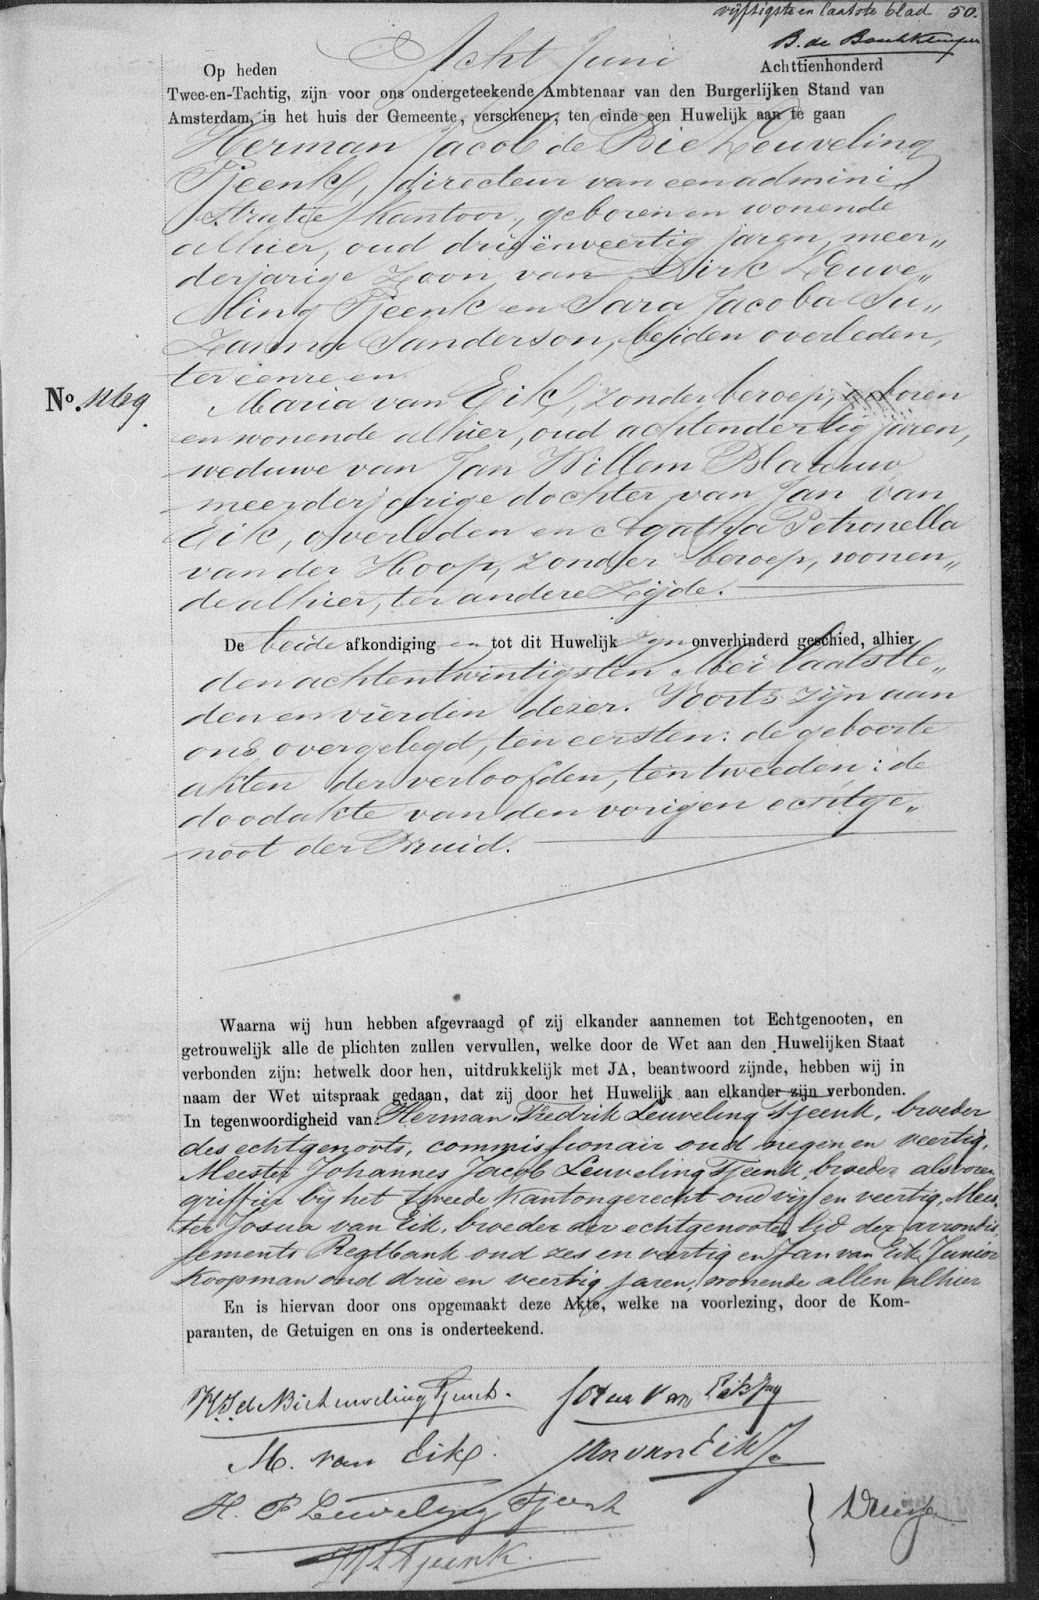 vijftigste en laatste blad 50.
B. de Bosch Kemper
Op heden Acht Juni Achttienhonderd
Twee-en-Tachtig, zijn voor ons ondergeteekende Ambtenaar van den Burgerlijken Stand van
Amsterdam, in het huis der Gemeente, verschenen, ten einde een Huwelijk aan te gaan
Herman Jacob de Bie Leuveling
Tjeenk, directeur van een admini„
stratie kantoor, geboren en wonende
alhier, oud drieënveertig jaren, meer„
derjarige zoon van Dirk Leuve„
ling Tjeenk en Sara Jacoba Su„
zanna Sanderson, beiden overleden,
ter eenre en
No. 1169.
Maria van Eik, zonder beroep, geboren
en wonende alhier, oud achtendertig jaren,
weduwe van Jan Willem Blaauw,
meerderjarige dochter van Jan van
Eik, overleden en Agatha Petronella
van der Hoop, zonder beroep, wonen„
de alhier, ter andere Zijde.
De beide afkondiging en tot dit Huwelijk zijn onverhinderd geschied, alhier
den achtentwintigsten Mei laatstle„
den en vierden dezer. Voorts zijn aan
ons overgelegd, ten eersten: de geboorte
akten der verloofden, ten tweeden: de
doodakte van den vorigen echtge„
noot der Bruid.
Waarna wij hun hebben afgevraagd of zij elkander aannemen tot Echtgenooten, en
getrouwelijk alle de plichten zullen vervullen, welke door de Wet aan den Huwelijken Staat
verbonden zijn: hetwelk door hen, uitdrukkelijk met JA, beantwoord zijnde, hebben wij in
naam der Wet uitspraak gedaan, dat zij door het Huwelijk aan elkander zijn verbonden.
In tegenwoordigheid van Herman Fredrik Leuveling Tjeenk, broeder
des echtgenoots, commissionair oud negen en veertig,
Meester Johannes Jacob Leuveling Tjeenk, broeder als voren
griffier bij het tweede Kantongerecht oud vijf en veertig, Mees„
ter Josua van Eik, broeder der echtgenoote, lid der arrondis„
sements Regtbank oud zes en veertig en Jan van Eik Junior
Koopman oud drie en veertig jaren, wonende allen alhier
En is hiervan door ons opgemaakt deze Akte, welke na voorlezing, door de Kom-
paranten, de Getuigen en ons is onderteekend.
H J de Bie Leuveling Tjeenk.
Josua van Eik
M. van Eik.
Jan van Eik Jr
H. F Leuveling Tjeenk
Tjeenk.